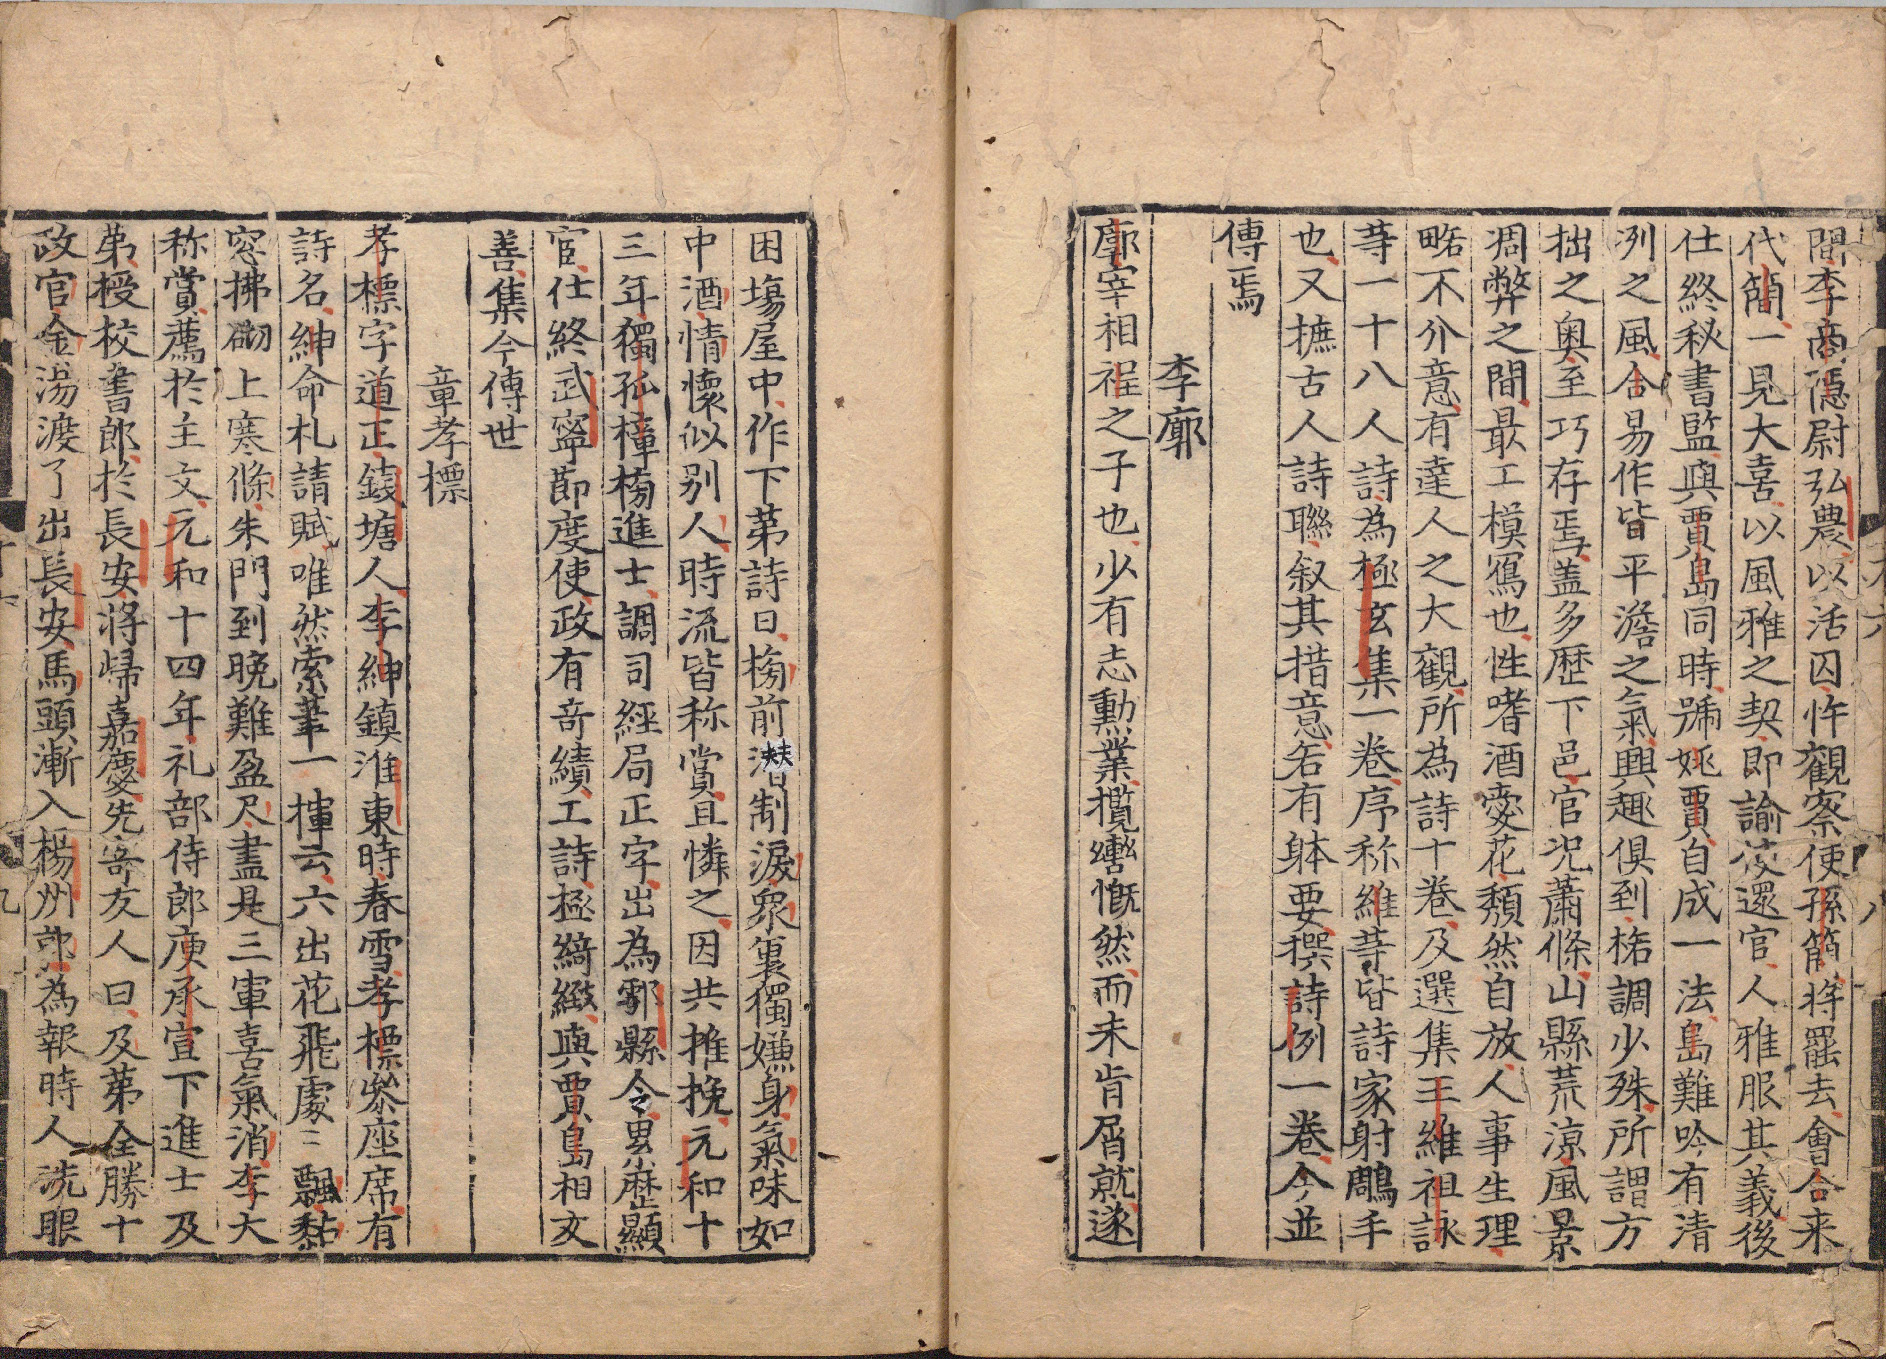 間李商隱尉弘農以活囚忤觀察使孫簡將罷去會合来
代簡一見大喜以風雅之契即諭使還官人雅服其義後
仕終秘書監與賈島同時號姚賈自成一法島難吟有清
冽之風合易作皆平澹之氣興趣俱到格調少殊所謂方
拙之奥至巧存焉盖多歴下邑官况蕭條山縣荒涼風景
凋弊之間最工模寫也性嗜酒愛花頽然自放人事生理
略不介意有達人之大觀所為詩十巻及選集王維祖詠
䓁一十八人詩為極玄集一巻序称維䓁皆詩家射鵰手
也又摭古人詩聯叙其措意各有躰要撰詩例一巻今並
傳焉
李廓
廓宰相程之子也少有志勲業攬轡慨然而未肯屑就遂
困塲屋中作下苐詩曰榜前潜制淚衆裏獨嫌身氣味如
中酒情懐似别人時流皆称賞且憐之因共推挽元和十
三年獨孤樟榜進士調司經局正字出為鄠縣令累歴顯
宦仕終武寧節度使政有竒績工詩極綺緻與賈島相友
善集今傳世
章孝標
孝標字道正錢塘人李紳鎮淮東時春雪孝標叅座席有
詩名紳命札請賦唯然索筆一揮云六出花飛處〻飄黏
窓拂砌上寒條朱門到晚難盈尺盡是三軍喜氣消李大
称賞薦於主文元和十四年礼部侍郎庾承宣下進士及
苐授校書郎於長安將歸嘉慶先寄友人曰及苐全勝十
政官金湯渡了出長安馬頭漸入楊州郭為報時人洗眼